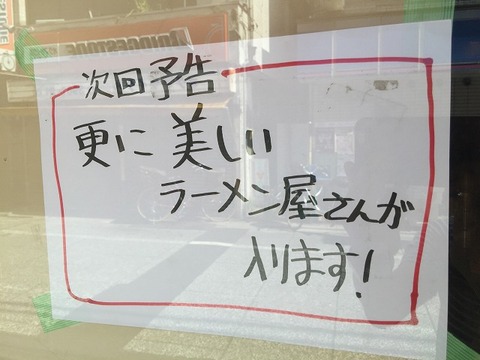 次回予告
更に美しい
ラーメン屋さんが
入ります!